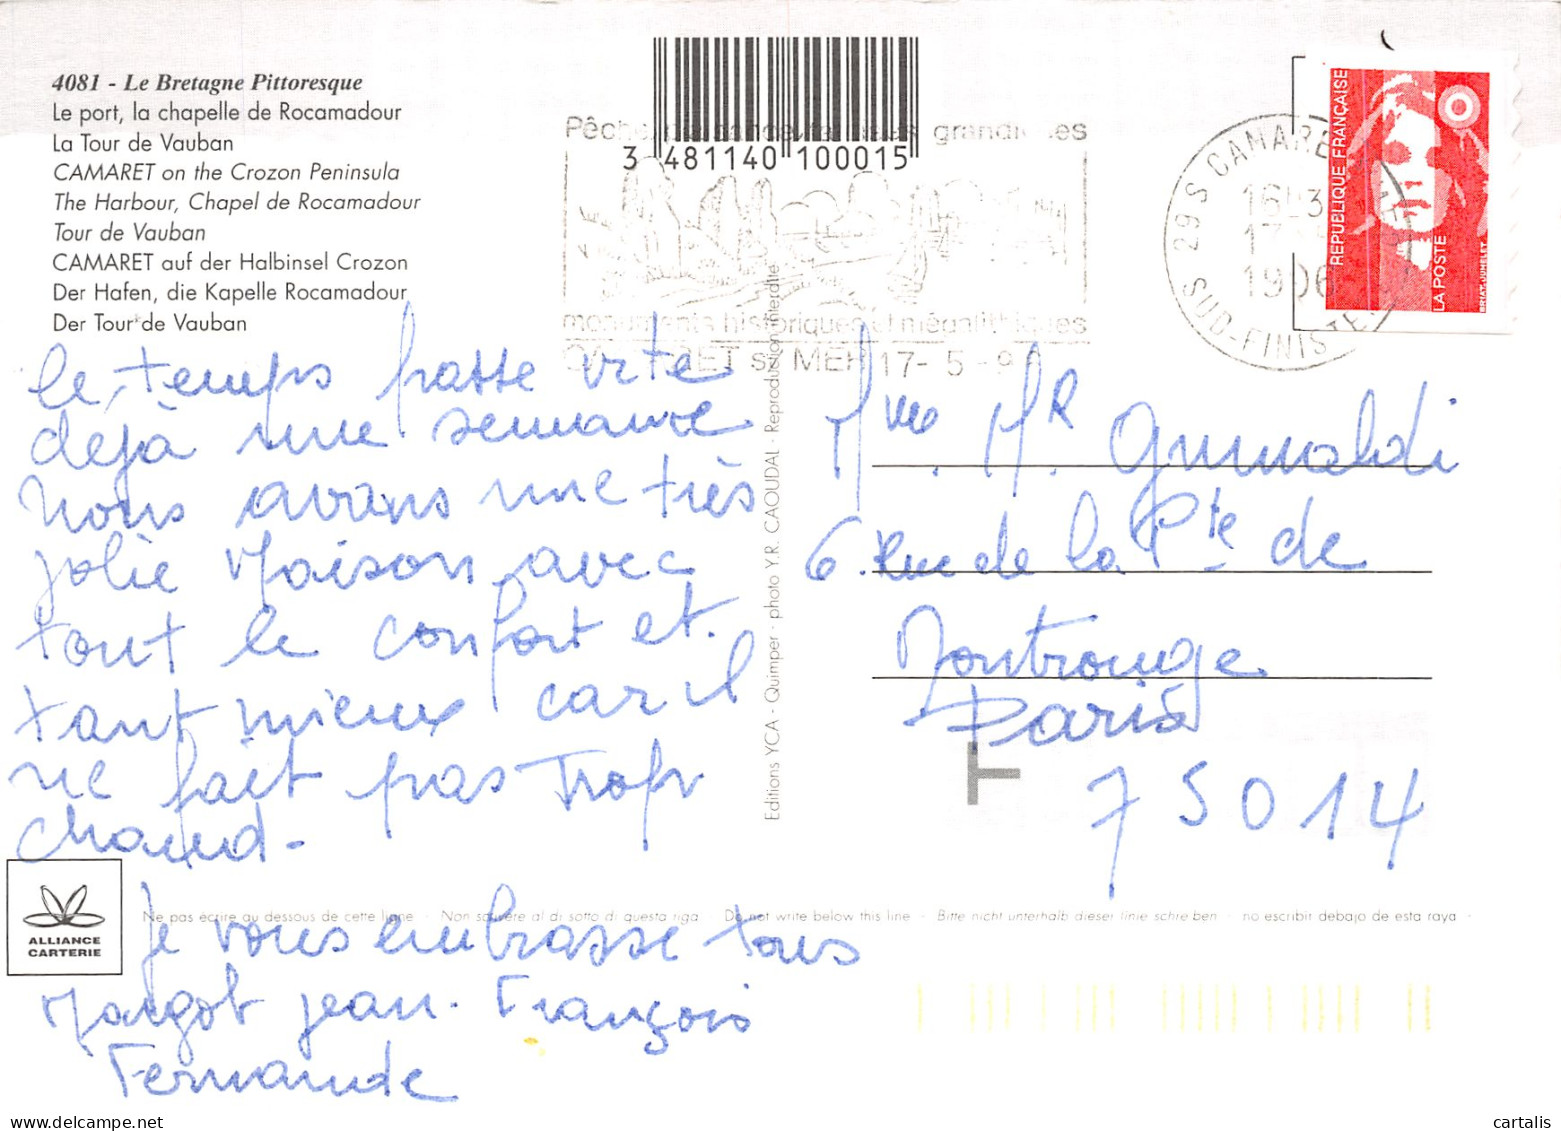 4081 - Le Bretagne Pittoresque
Le port, la chapelle de Rocamadour
La Tour de Vauban
CAMARET on the Crozon Peninsula
The Harbour, Chapel de Rocamadour
Tour de Vauban
CAMARET auf der Halbinsel Crozon
Der Hafen, die Kapelle Rocamadour
Der Tour de Vauban
3 481140 100015
monuments historiques et mégalithiques
17- 5 -9
29 S CAMARET
SUD-FINISTE
REPUBLIQUE FRANÇAISE
LA POSTE
le temps passe vite
déjà une semaine
Nous avons une très
jolie Maison avec
tout le confort et
tant mieux car il
ne fait pas trop
chaud -
Je vous embrasse tous
Margot jean - François
Fernande
Editions YCA - Quimper - photo Y.R. CAOUDAL - Reproduction interdite
Mme. Mr Grimaldi
6. Rue de la Pte de
Montrouge
Paris
T
75014
ALLIANCE
CARTERIE
Ne pas écrire au dessous de cette ligne · Non scrivere al di sotto di questa riga · Do not write below this line · Bitte nicht unterhalb dieser linie schreiben · no escribir debajo de esta raya ·
cartalis